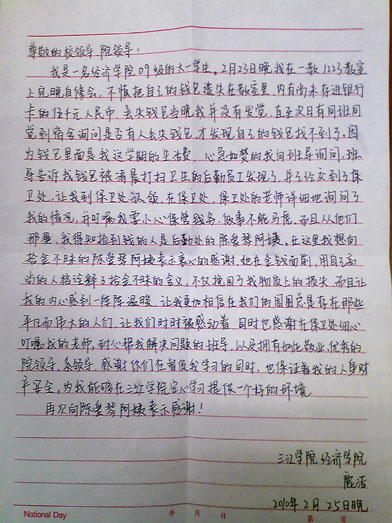 尊敬的校领导、院领导:
我是一名经济学院09级的大一学生。2月23日晚我在一教1223教室
上完晚自修后,不慎把自己的钱包遗失在教室里,内有尚未存进银行
卡的伍仟元人民币。丢失钱包当晚我并没有发觉,直至次日有同班同
学到宿舍询问是否有人丢失钱包,才发现自己的钱包找不到了。因
为钱包里面是我这学期的生活费,心急如焚的我向班导询问,班
导告诉我钱包被清晨打扫卫生的后勤员工发现了,并已经交到了保
卫处,让我到保卫处认领。在保卫处,保卫处的老师详细地询问了
我的情况,并叮嘱我要小心保管钱包,做事不能马虎。而且从他们
那里,我得知捡到钱的人是后勤处的陈爱琴阿姨,在这里我想向
拾金不昧的陈爱琴阿姨表示衷心的感谢。她在金钱面前,用自己高
尚的人格诠释了拾金不昧的含义,不仅挽回了我物质上的损失,而且让
我的内心感到一阵阵温暖,让我更加相信在我们的周围总是存在那些
平凡而伟大的人们,让我们时时被感动着。同时也感谢在保卫处细心
叮嘱我的老师,耐心帮我解决问题的班导,以及拥有如此敬业、优秀的
院领导、系领导,感谢你们在督促我学习的同时,也保证着我的人身财
产安全,为我能够在三江学院安心学习提供一个好的环境。
再次向陈爱琴阿姨表示感谢!
三江学院 经济学院
2010年2月25日晚
National Day
年 月 日
第 页